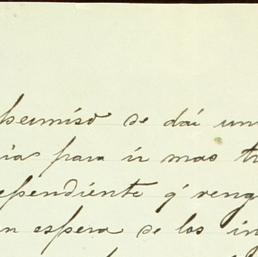 permiso de dai un
ia para ir mas tr
ependiente q' veng
n espera de los in